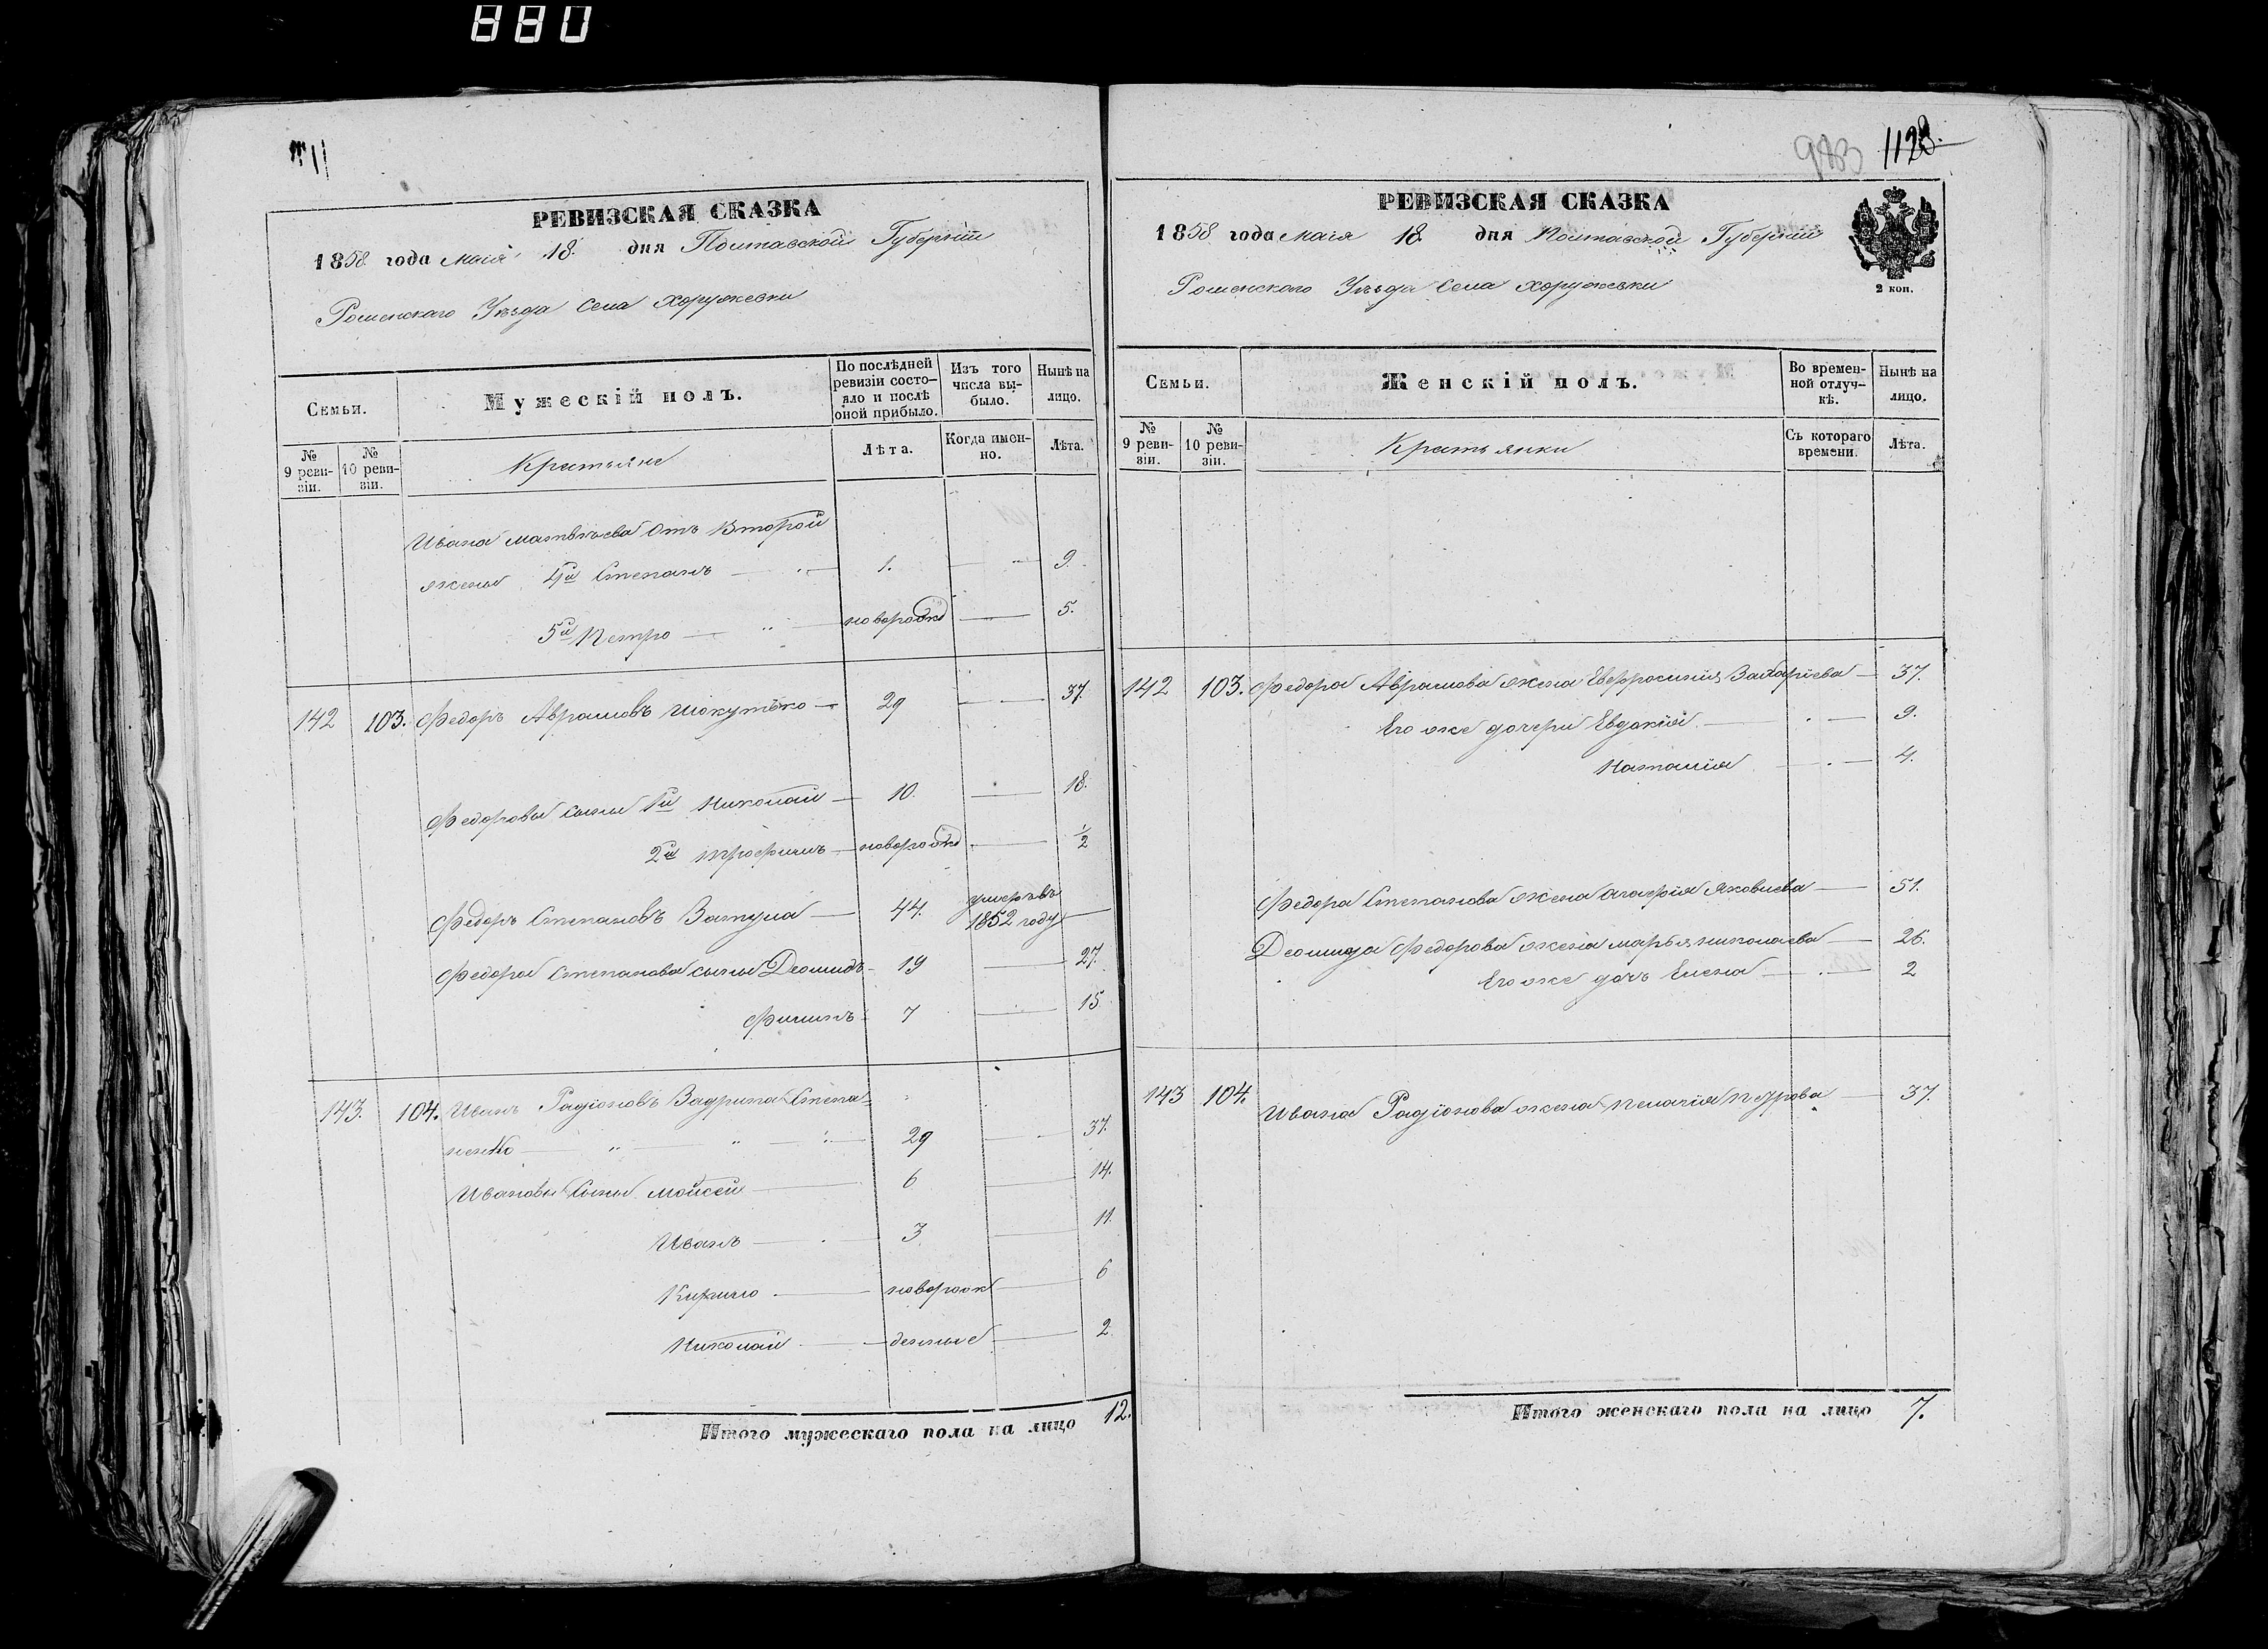 880
РЕВИЗСКАЯ СКАЗКА
1858 года маія 18. дня Полтавской Губерніи
Роменскаго Уѣзда Села Хоружевки
Семьи.
Мужескій полъ.
По послѣдней ревизіи состояло и послѣ оной прибыло.
Изъ того числа выбыло.
Нынѣ на лицо.
№ 9 ревизіи.
№ 10 ревизіи.
Крестьяне
Лѣта.
Когда именно.
Лѣта.
Ивана Матвѣева отъ второй
жены 4й Степанъ 1. 9.
5й Петро новорожд 5.
142 103. Федоръ Аврамовъ 29 37.
Федоровы сыны 1й Николай 10. 18.
2й Трофимъ новорожд ½
Федоръ Степановъ Затула 44. умеръ въ 1852 году
Федора Степанова сыны Деомидъ 19 27.
Филипъ 7 15
143. 104. Иванъ Радіоновъ Задрипа Степа-
ненко 29 37.
Ивановы Сыны Мойсей 6 14.
Иванъ 3 11.
Кирило новорож 6
Николай денные 2
Итого мужескаго пола на лицо 12.
983 1128.
РЕВИЗСКАЯ СКАЗКА
1858 года маія 18. дня Полтавской Губерніи
2 коп.
Роменскаго Уѣзда Села Хоружевки
Семьи.
Женскій полъ.
Во временной отлучкѣ.
Нынѣ на лицо.
№ 9 ревизіи.
№ 10 ревизіи.
Крестьянки
Съ котораго времени.
Лѣта.
142 103. Федора Аврамова жена Евфросинія Захаріева 37.
Его же дочери Евдокія 9.
Наталія 4.
Федора Степанова жена Агафія Яковлева 51.
Деомида Федорова жена Марья Николаева 26.
Его же дочь Елена 2
143 104. Ивана Радіонова жена Пелагія 37.
Итого женскаго пола на лицо 7.